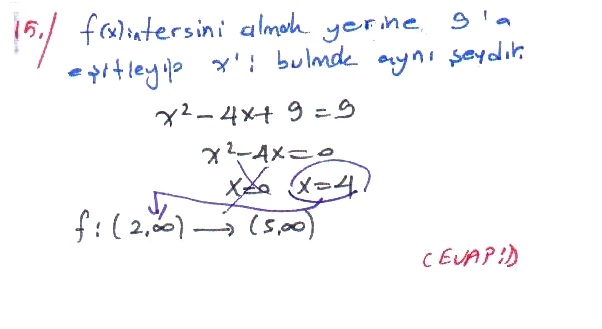 15. f(x)in tersini almak yerine 9'a
eşitleyip x'i bulmak aynı şeydir.
x² - 4x + 9 = 9
x² - 4x = 0
x=0 x=4
f: (2,∞) → (5,∞)
CEVAP: D